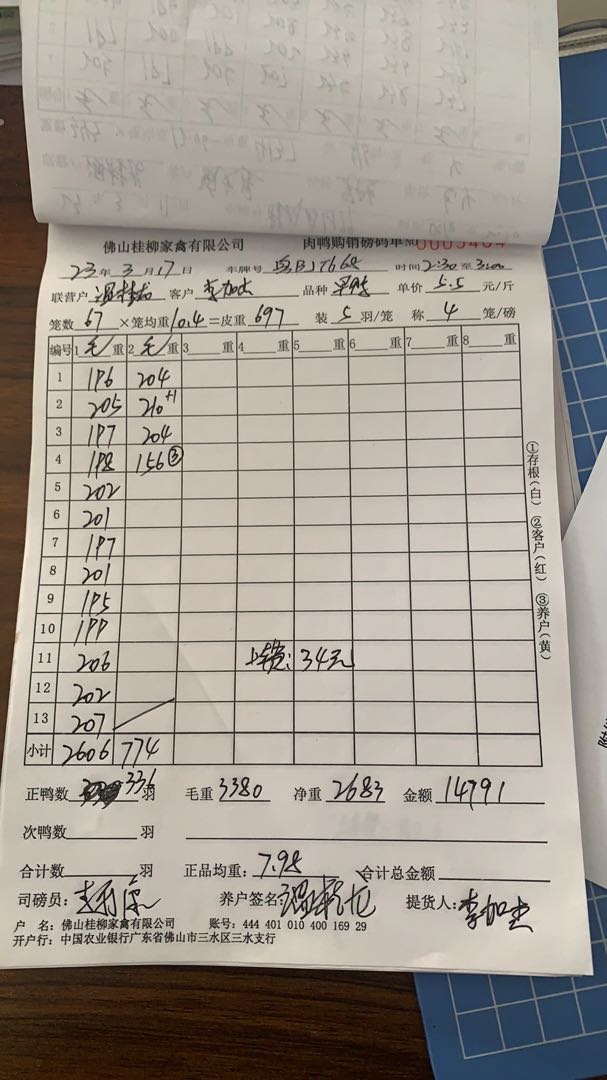 佛山桂柳家禽有限公司 肉鸭购销磅码单 №0005464
23年3月17日 车牌号 时间2:30至3:00
联营户 客户 李加杰 品种 单价 5.5 元/斤
笼数 67 ×笼均重 10.4 =皮重 697 装 5 羽/笼 称 4 笼/磅
编号 1 毛/重 2 毛/重 3 重 4 重 5 重 6 重 7 重 8 重
1 196 204
2 205 210+1
3 197 204
4 198 156③
5 202
6 201
7 197
8 201
9 195
10 199
11 206 上车费:34元
12 202
13 207
小计 2606 774
正鸭数 336 羽 毛重 3380 净重 2683 金额 14791
次鸭数 羽
合计数 羽 正品均重: 7.98 合计总金额
司磅员: 养户签名: 提货人: 李加杰
户 名: 佛山桂柳家禽有限公司 账号: 444 401 010 400 169 29
开户行: 中国农业银行广东省佛山市三水区三水支行
①存根(白) ②客户(红) ③养户(黄)